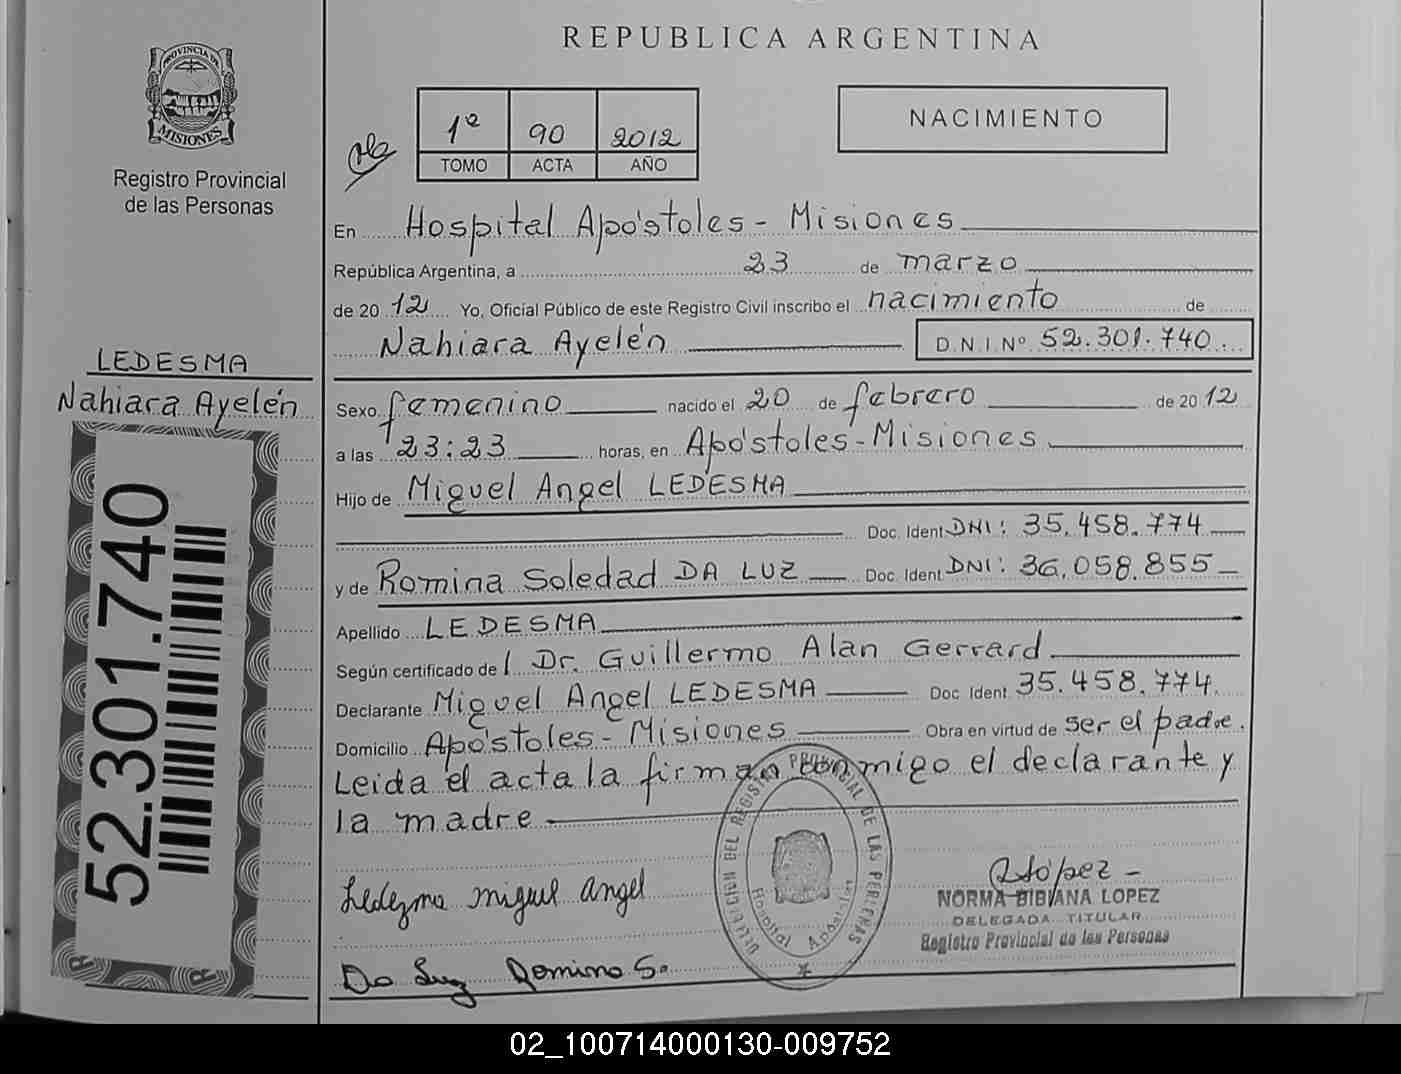 REPUBLICA ARGENTINA
PROVINCIA DE
MISIONES
Registro Provincial
de las Personas
1º 90 2012
TOMO ACTA AÑO
NACIMIENTO
En Hospital Apóstoles - Misiones
República Argentina, a 23 de marzo
de 2012 Yo, Oficial Público de este Registro Civil inscribo el nacimiento de
Nahiara Ayelén D.N.I.Nº 52.301.740
LEDESMA
Nahiara Ayelén
52.301.740
Sexo femenino nacido el 20 de febrero de 2012
a las 23:23 horas, en Apóstoles - Misiones
Hijo de Miguel Angel LEDESMA
Doc. Ident. DNI: 35.458.774
y de Romina Soledad DA LUZ Doc. Ident. DNI: 36.058.855
Apellido LEDESMA
Según certificado de l Dr. Guillermo Alan Gerrard
Declarante Miguel Angel LEDESMA Doc. Ident. 35.458.774
Domicilio Apóstoles - Misiones Obra en virtud de ser el padre.
Leida el acta la firman conmigo el declarante y
la madre
Ledezma miguel angel
Da Luz Romina S.
DELEGACION DEL REGISTRO PROVINCIAL DE LAS PERSONAS
Hospital Apóstoles
NORMA BIBIANA LOPEZ
DELEGADA TITULAR
Registro Provincial de las Personas
02_100714000130-009752